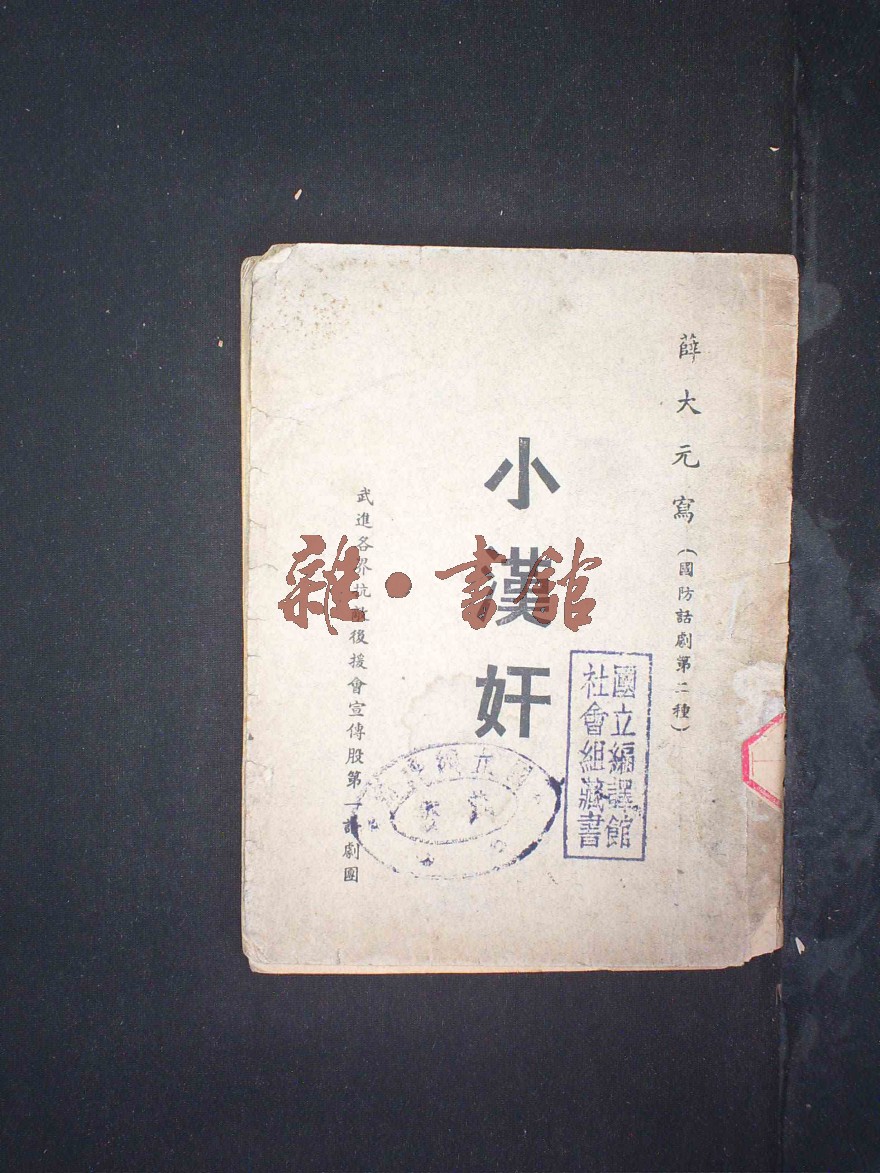 薛大元寫（國防話劇第二種）
小漢奸
武進各界抗敵後援會宣傳股第一話劇團
國立編譯館
社會組藏書
雜·書館